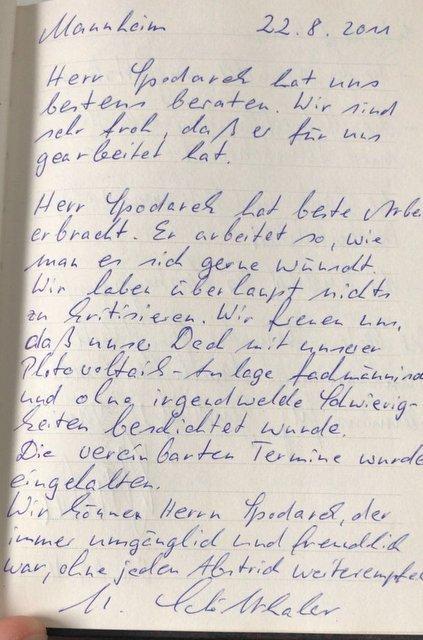 Mannheim 22.8.2011
Herr Spodarek hat uns
bestens beraten. Wir sind
sehr froh, daß er für uns
gearbeitet hat.
Herr Spodarek hat beste Arbei
erbracht. Er arbeitet so, wie
man es sich gerne wünscht.
Wir haben überhaupt nichts
zu kritisieren. Wir freuen uns,
daß unser Dach mit unserer
Photovoltaik-Anlage fachmännisch
und ohne irgendwelche Schwierig-
keiten beschichtet wurde.
Die vereinbarten Termine wurde
eingehalten.
Wir können Herrn Spodarek, der
immer umgänglich und freundlich
war, ohne jeden Abstrich weiterempfe